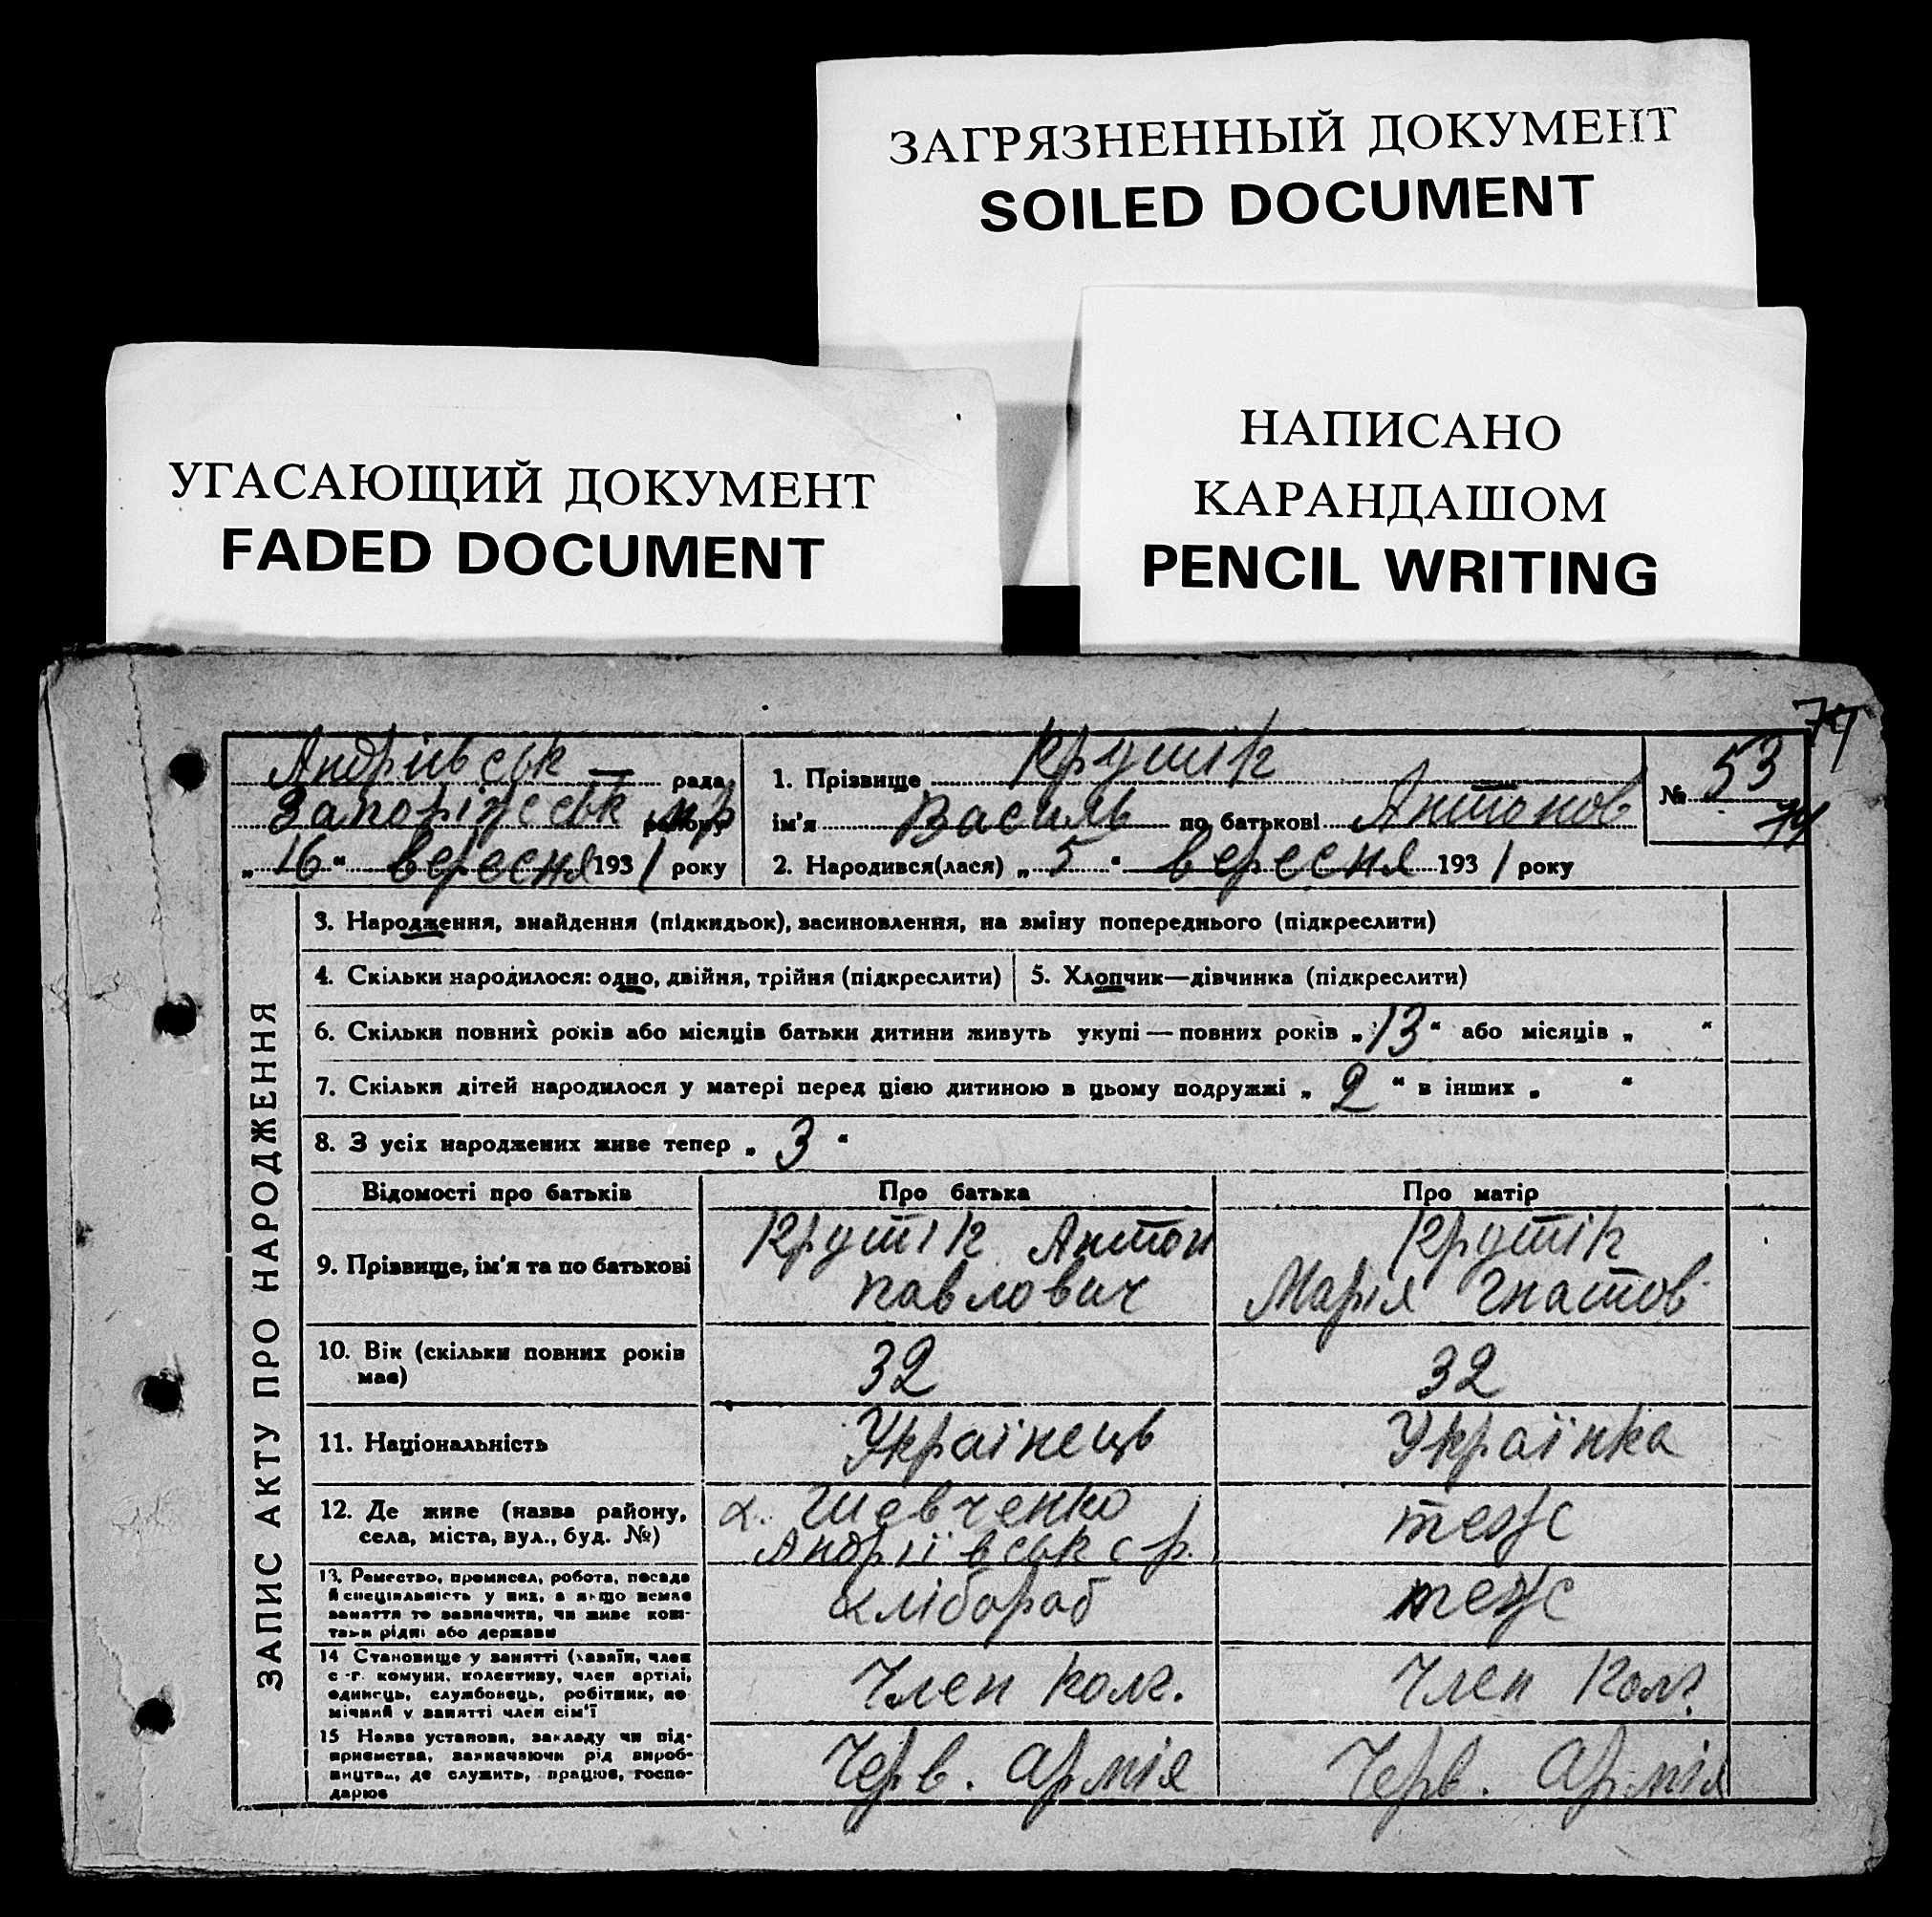 ЗАГРЯЗНЕННЫЙ ДОКУМЕНТ
SOILED DOCUMENT
НАПИСАНО
КАРАНДАШОМ
PENCIL WRITING
УГАСАЮЩИЙ ДОКУМЕНТ
FADED DOCUMENT
74
Андріївськ рада
Запоріжськ м/р району
„16“ вересня 1931 року
1. Прізвище Крутік
ім'я Василь по батькові Антонов
2. Народився(лася) „5“ вересня 1931 року
№ 53
74
ЗАПИС АКТУ ПРО НАРОДЖЕННЯ
3. Народження, знайдення (підкидьок), засиновлення, на зміну попереднього (підкреслити)
4. Скільки народилося: одно, двійня, трійня (підкреслити) 5. Хлопчик—дівчинка (підкреслити)
6. Скільки повних років або місяців батьки дитини живуть укупі — повних років „13“ або місяців „ “
7. Скільки дітей народилося у матері перед цією дитиною в цьому подружжі „2“ в інших „ “
8. З усіх народжених живе тепер „3“
Відомості про батьків Про батька Про матір
9. Прізвище, ім'я та по батькові
Крутік Антон
Павлович
Крутік
Марія Гнатов
10. Вік (скільки повних років
має)
32
32
11. Національність
Українець
Українка
12. Де живе (назва району,
села, міста, вул., буд. №)
х. Шевченко
Андріївськ с р.
теж
13. Ремество, промисел, робота, посада
й спеціяльність у них, а якщо немає
заняття то зазначити, чи живе кош-
тами рідні або держави
хлібороб
теж
14 Становище у занятті (хазяїн, член
с.-г. комуни, колективу, член артілі,
одинець, службовець, робітник, по
мічний у занятті член сім'ї
Член колг.
Член колг
15 Назва установи, закладу чи під-
приємства, зазначаючи рід вироб-
ництва, де служить, працює, госпо-
дарює
Черв. Армія
Черв. Армія